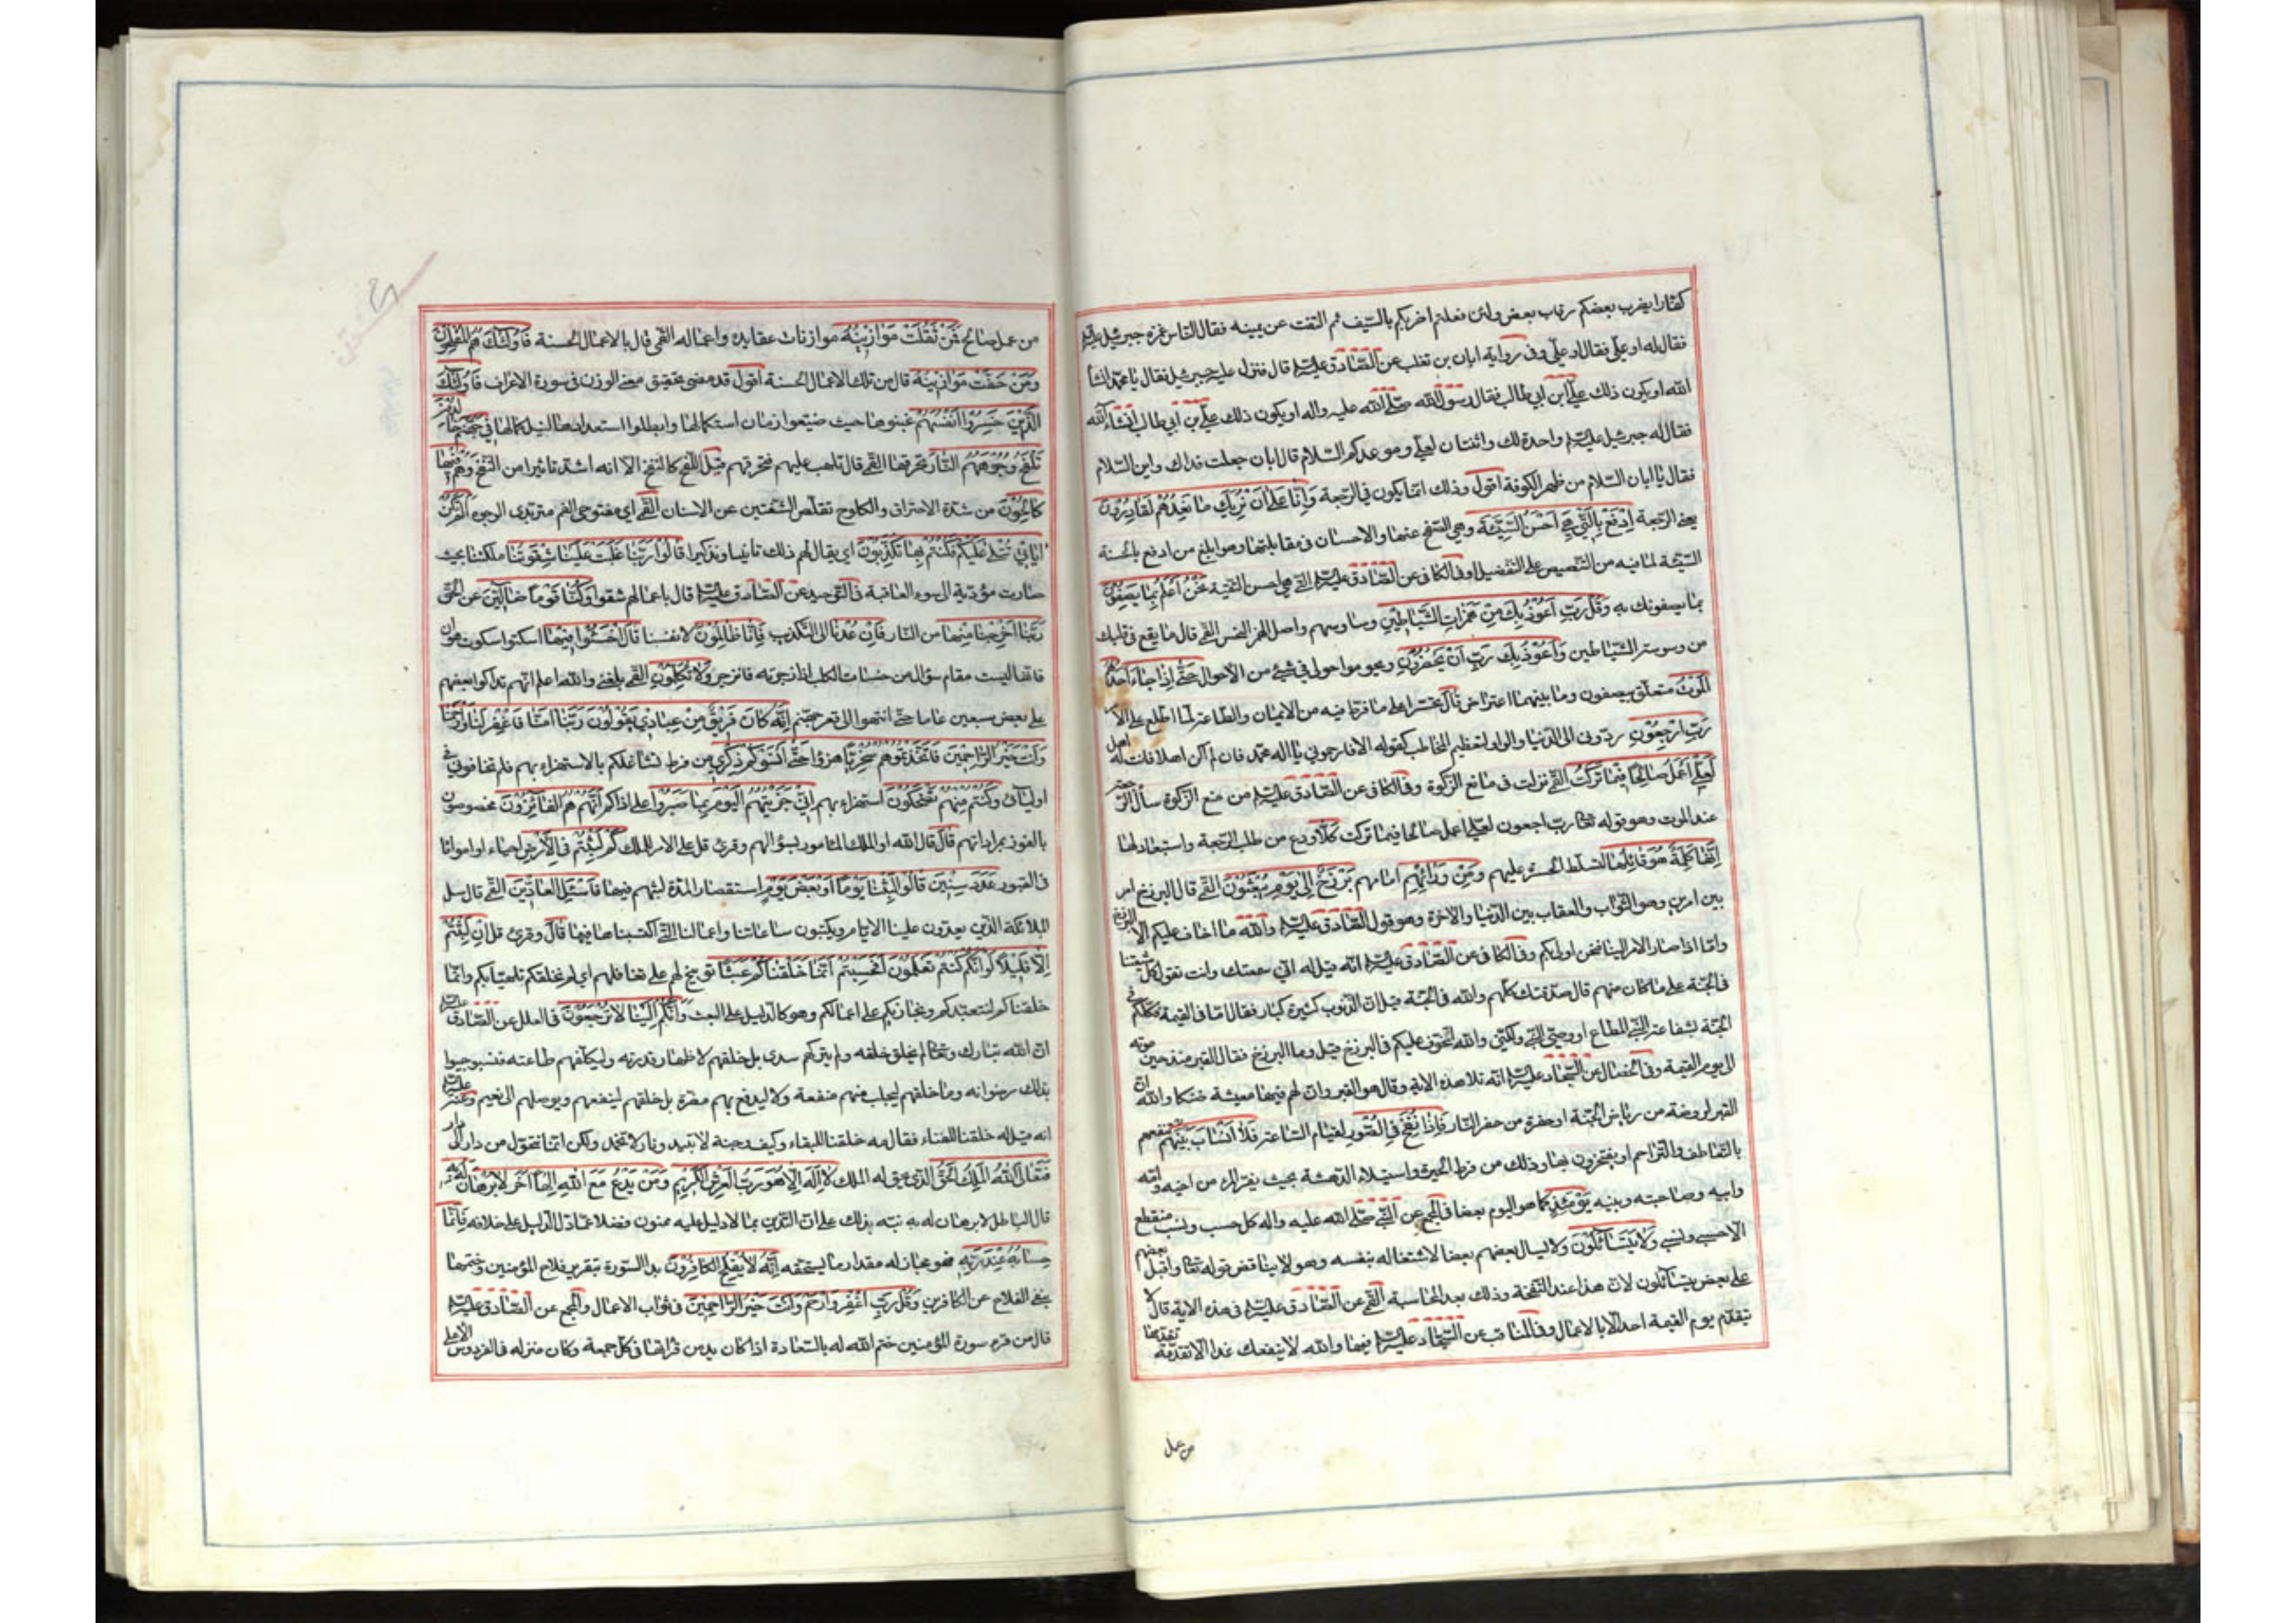 كفارا يضرب بعضكم رقاب بعض ولئن فعلتم اضربكم بالسيف ثم التفت عن يمينه فقال الناس غمزه جبرئيل
فقال له او علي فقال او علي وفي رواية ابان بن تغلب عن الصادق عليه السلام قال فنزل عليه جبرئيل فقال يا محمد انشأ
الله او يكون ذلك علي ابن ابي طالب فقال رسول الله صلى الله عليه واله او يكون ذلك علي بن ابي طالب انشاء الله
فقال له جبرئيل عليه السلام واحدة لك واثنتان لعلي وموعدكم السلام قال ابان جعلت فداك واين السلام
فقال يا ابان السلام من ظهر الكوفة اقول وذلك انما يكون في الرجعة وَاِنَّا عَلىٰ اَنْ نُرِيَكَ مَا نَعِدُهُمْ لَقَادِرُونَ
يعني الرجعة اِدْفَعْ بِالَّتِي هِيَ اَحْسَنُ السَّيِّئَةَ وهي الصفح عنها والاحسان في مقابلتها وهو ابلغ من ادفع بالحسنة
السيئة لما فيه من التنصيص على التفضيل وفي الكافي عن الصادق عليه السلام التي هي احسن التقية نَحْنُ اَعْلَمُ بِمَا يَصِفُونَ
بما يصفونك به وَقُلْ رَبِّ اَعُوذُ بِكَ مِنْ هَمَزَاتِ الشَّيَاطِينِ وساوسهم واصل الهمز النخس القمي قال ما يقع في قلبك
من وسوسة الشياطين وَاَعُوذُ بِكَ رَبِّ اَنْ يَحْضُرُونِ ويحوموا حولي في شيء من الاحوال حَتّىٰ اِذَا جَاءَ اَحَدَهُمُ
الْمَوْتُ متعلق بيصفون وما بينهما اعتراض قَالَ تحسرا على ما فرط فيه من الايمان والطاعة لما اطلع على الامر
رَبِّ ارْجِعُونِ ردوني الى الدنيا والواو لتعظيم المخاطب كقوله الا فارحموني يا اله محمد فان لم اكن اهلا فانت له اهل
لَعَلِّي اَعْمَلُ صَالِحًا فِيمَا تَرَكْتُ القمي نزلت في مانع الزكوة وفي الكافي عن الصادق عليه السلام من منع الزكوة سأل الرجعة
عند الموت وهو قوله تعالى رب ارجعون لعلي اعمل صالحا فيما تركت كَلَّا ردع من طلب الرجعة واستبعاد لها
اِنَّهَا كَلِمَةٌ هُوَ قَائِلُهَا لتسلط الحسرة عليهم وَمِنْ وَرَائِهِمْ امامهم بَرْزَخٌ اِلىٰ يَوْمِ يُبْعَثُونَ القمي قال البرزخ امر
بين امرين وهو الثواب والعقاب بين الدنيا والاخرة وهو قول الصادق عليه السلام والله ما اخاف عليكم الا البرزخ
واما اذا صار الامر الينا فنحن اولى بكم وفي الكافي عن الصادق عليه السلام انه قيل له اني سمعتك وانت تقول كل شيعتنا
في الجنة على ما كان منهم قال صدقتك كلهم والله في الجنة قيل ان الذنوب كثيرة كبار فقال اما في القيمة فكلكم في
الجنة بشفاعة النبي المطاع او وصي النبي ولكني والله اتخوف عليكم في البرزخ قيل وما البرزخ فقال القبر منذ حين موته
الى يوم القيمة وفي الخصال عن السجاد عليه السلام انه تلا هذه الاية وقال هو القبر وان لهم فيها معيشة ضنكا والله ان
القبر لروضة من رياض الجنة او حفرة من حفر النار فَاِذَا نُفِخَ فِي الصُّورِ لقيام الساعة فَلَا اَنْسَابَ بَيْنَهُمْ تنفعهم
بالتعاطف والتراحم او يفتخرون بها وذلك من فرط الحيرة واستيلاء الدهشة بحيث يفر المرء من اخيه وامه
وابيه وصاحبته وبنيه يَوْمَئِذٍ كما هو اليوم بعضا في المجمع عن النبي صلى الله عليه واله كل حسب ونسب منقطع
الا حسبي ونسبي وَلَا يَتَسَائَلُونَ ولا يسال بعضهم بعضا لاشتغاله بنفسه وهو لا يناقض قوله تعالى واقبل بعضهم
على بعض يتسائلون لان هذا عند النفخة وذلك بعد المحاسبة القمي عن الصادق عليه السلام في هذه الاية قال لا
يتقدم يوم القيمة احد الا بالاعمال وفي المناقب عن السجاد عليه السلام فيها والله لا ينفعك غدا الا تقدمة تقدمها
من عمل
من عمل صالح فَمَنْ ثَقُلَتْ مَوَازِينُهُ موازنات عقايده واعماله القمي قال بالاعمال الحسنة فَاُولٰئِكَ هُمُ الْمُفْلِحُونَ
وَمَنْ خَفَّتْ مَوَازِينُهُ قال من تلك الاعمال الحسنة اقول قد مضى تحقيق معنى الوزن في سورة الاعراف فَاُولٰئِكَ
الَّذِينَ خَسِرُوا اَنْفُسَهُمْ غبنوها حيث ضيعوا زمان استكمالها وابطلوا استعدادها لنيل كمالها فِي جَهَنَّمَ خَالِدُونَ
تَلْفَحُ وُجُوهَهُمُ النَّارُ تحرقها القمي قال تلهب عليهم فتحرقهم قيل اللفح كالنفخ الا انه اشد تاثيرا من النفخ وَهُمْ فِيهَا
كَالِحُونَ من شدة الاحتراق والكلوح تقلص الشفتين عن الاسنان القمي اي مفتوحي الفم متربدي الوجوه اَلَمْ تَكُنْ
اٰيَاتِي تُتْلىٰ عَلَيْكُمْ فَكُنْتُمْ بِهَا تُكَذِّبُونَ اي يقال لهم ذلك تانيبا وتذكيرا قَالُوا رَبَّنَا غَلَبَتْ عَلَيْنَا شِقْوَتُنَا ملكتنا بحيث
صارت مؤدية الى سوء العاقبة في التوحيد عن الصادق عليه السلام قال باعمالهم شقوا وَكُنَّا قَوْمًا ضَالِّينَ عن الحق
رَبَّنَا اَخْرِجْنَا مِنْهَا من النار فَاِنْ عُدْنَا الى التكذيب فَاِنَّا ظَالِمُونَ لانفسنا قَالَ اخْسَئُوا فِيهَا اسكتوا سكوت هوان
فانها ليست مقام سؤال من خسات الكلب اذا زجرته فانزجر وَلَا تُكَلِّمُونِ القمي بلغني والله اعلم انهم تداكوا بعضهم
على بعض سبعين عاما حتى انتهوا الى قعر جهنم اِنَّهُ كَانَ فَرِيقٌ مِنْ عِبَادِي يَقُولُونَ رَبَّنَا اٰمَنَّا فَاغْفِرْ لَنَا وَارْحَمْنَا
وَاَنْتَ خَيْرُ الرَّاحِمِينَ فَاتَّخَذْتُمُوهُمْ سِخْرِيًّا هزؤا حَتّىٰ اَنْسَوْكُمْ ذِكْرِي من فرط تشاغلكم بالاستهزاء بهم فلم تخافوني في
اوليائي وَكُنْتُمْ مِنْهُمْ تَضْحَكُونَ استهزاء بهم اِنِّي جَزَيْتُهُمُ الْيَوْمَ بِمَا صَبَرُوا على اذاكم اَنَّهُمْ هُمُ الْفَائِزُونَ مخصوصون
بالفوز بمراداتهم قَالَ قال الله او الملك المامور بسؤالهم وقرئ قل على الامر للملك كَمْ لَبِثْتُمْ فِي الْاَرْضِ احياء او امواتا
في القبور عَدَدَ سِنِينَ قَالُوا لَبِثْنَا يَوْمًا اَوْ بَعْضَ يَوْمٍ استقصارا لمدة لبثهم فيها فَاسْئَلِ الْعَادِّينَ القمي قال سل
الملائكة الذين يعدون علينا الايام ويكتبون ساعاتنا واعمالنا التي اكتسبناها فيها قَالَ وقرئ قل اِنْ لَبِثْتُمْ
اِلَّا قَلِيلًا لَوْ اَنَّكُمْ كُنْتُمْ تَعْلَمُونَ اَفَحَسِبْتُمْ اَنَّمَا خَلَقْنَاكُمْ عَبَثًا توبيخ لهم على تغافلهم اي لم نخلقكم تلهيا بكم وانما
خلقناكم لنتعبدكم ونجازيكم على اعمالكم وهو كالدليل على البعث وَاَنَّكُمْ اِلَيْنَا لَا تُرْجَعُونَ في العلل عن الصادق عليه السلام
ان الله تبارك وتعالى لم يخلق خلقه عبثا ولم يتركهم سدى بل خلقهم لاظهار قدرته وليكلفهم طاعته فيستوجبوا
بذلك رضوانه وما خلقهم ليجلب منهم منفعة ولا ليدفع بهم مضرة بل خلقهم لينفعهم ويوصلهم الى نعيم وعنه عليه السلام
انه قيل له خلقنا للفناء فقال مه خلقنا للبقاء وكيف وجنة لا تبيد ونار لا تخمد ولكن انما نتحول من دار الى دار
فَتَعَالَى اللّٰهُ الْمَلِكُ الْحَقُّ الذي يحق له الملك لَا اِلٰهَ اِلَّا هُوَ رَبُّ الْعَرْشِ الْكَرِيمِ وَمَنْ يَدْعُ مَعَ اللّٰهِ اِلٰهًا اٰخَرَ لَا بُرْهَانَ لَهُ بِهِ
فان الباطل لا برهان له به نبه بذلك على ان التدين بما لا دليل عليه ممنوع فضلا عما دل الدليل على خلافه فَاِنَّمَا
حِسَابُهُ عِنْدَ رَبِّهِ فهو مجاز له مقدار ما يستحقه اِنَّهُ لَا يُفْلِحُ الْكَافِرُونَ بدا السورة بتقرير فلاح المؤمنين وختمها
بنفي الفلاح عن الكافرين وَقُلْ رَبِّ اغْفِرْ وَارْحَمْ وَاَنْتَ خَيْرُ الرَّاحِمِينَ في ثواب الاعمال والمجمع عن الصادق عليه السلام
قال من قرء سورة المؤمنين ختم الله له بالسعادة اذا كان يدمن قرائتها في كل جمعة وكان منزله في الفردوس الاعلى